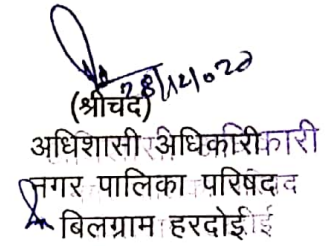 28/12/2020
(श्रीचंद)
अधिशासी अधिकारी
नगर पालिका परिषद
बिलग्राम हरदोई